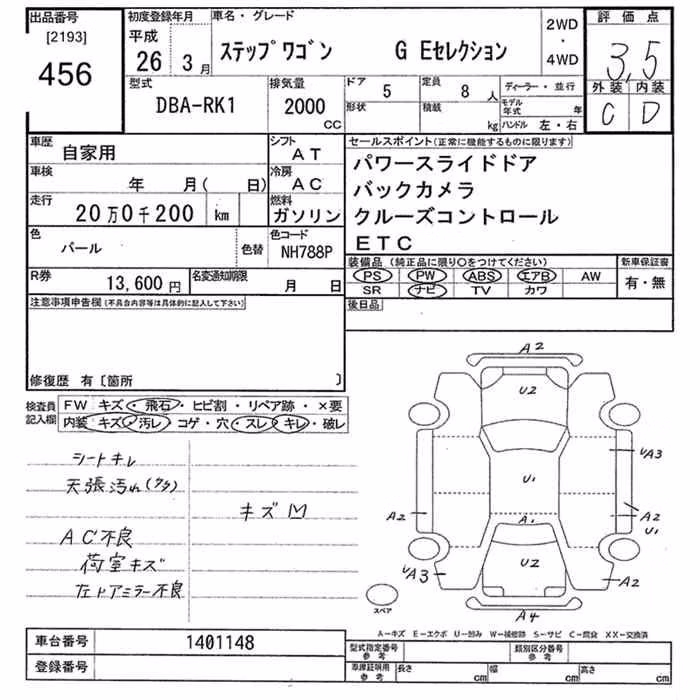 出品番号
[2193]
456
初度登録年月
平成
26 3月
車名・グレード
ステップワゴン G Eセレクション
2WD
・
4WD
評価点
3,5
外装 内装
C D
型式
DBA-RK1
排気量
2000
CC
ドア 5
形状
定員 8 人
積載 kg
ディーラー・並行
モデル年式 年
ハンドル 左・右
車歴
自家用
シフト
AT
車検
年 月( 日)
冷房
AC
走行
20万0千200 km
燃料
ガソリン
色
パール
色替
色コード
NH788P
R券
13,600 円
名変通知期限
月 日
セールスポイント(正常に機能するものに限ります)
パワースライドドア
バックカメラ
クルーズコントロール
ETC
装備品(純正品に限り○をつけてください)
PS PW ABS エアB AW
SR ナビ TV カワ
新車保証書
有・無
後日品
注意事項申告欄(不具合内容等は具体的に記入して下さい)
修復歴 有〔箇所 〕
検査員
記入欄
FW キズ・飛石・ヒビ割・リペア跡・×要
内装 キズ・汚レ・コゲ・穴・スレ・キレ・破レ
シートキレ
天張汚れ(タタ)
キズM
AC不良
荷室キズ
左ドアミラー不良
A2
U2
UA3
U1
A2
A1
A2
U1
U2
UA3
A2
A4
スペア
A-キズ E-エクボ U-凹み W-補修跡 S-サビ C-腐食 XX-交換済
車台番号 1401148
登録番号
型式指定番号
参考
類別区分番号
参考
車庫証明用
参考
長さ cm
幅 cm
高さ cm